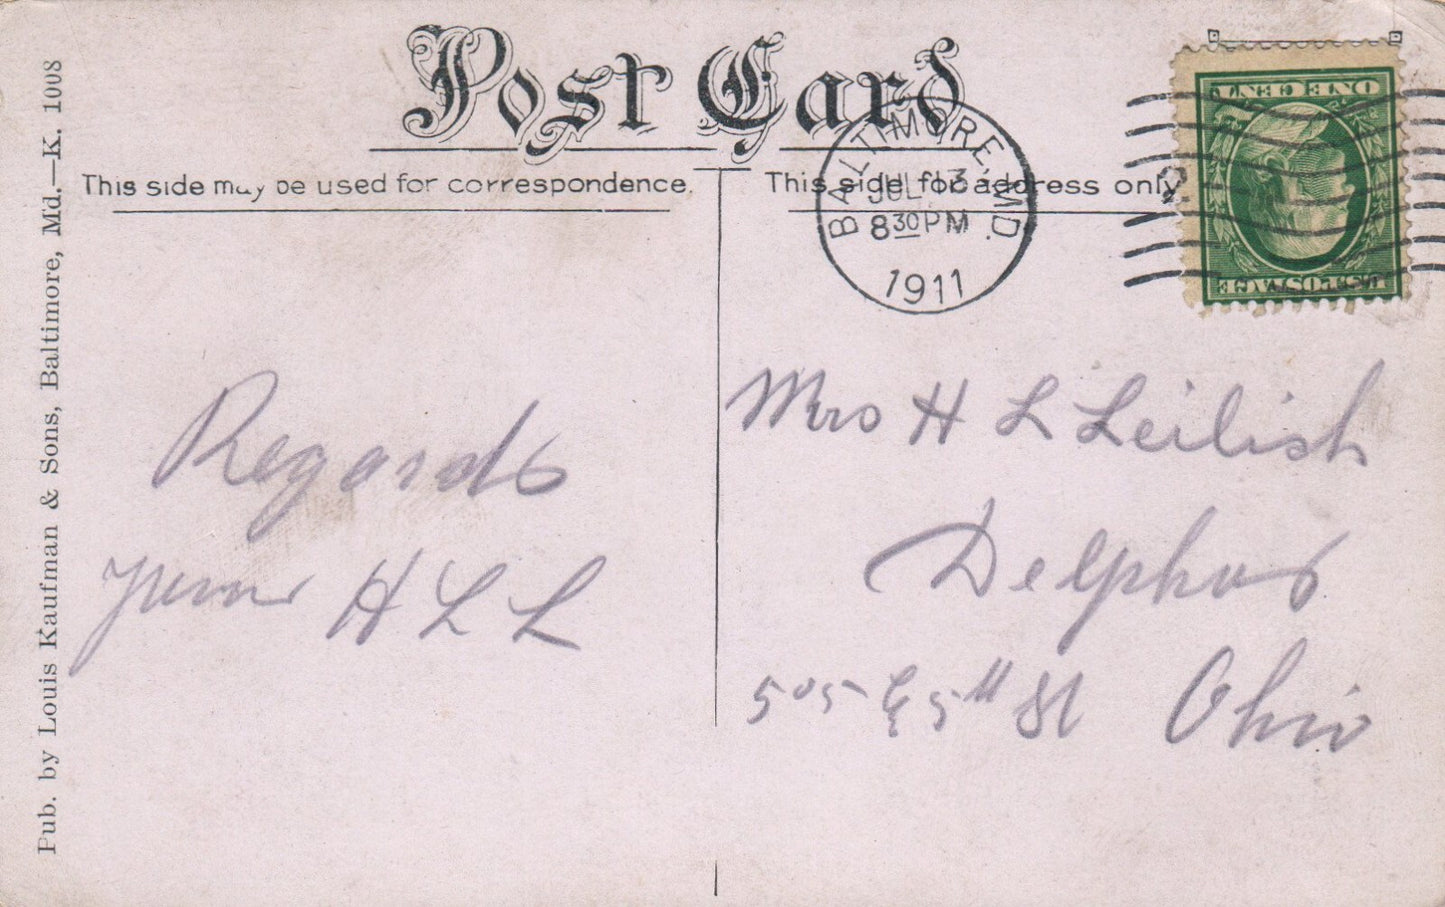 Post Card
This side may be used for correspondence.
This side for address only
BALTIMORE, MD.
JUL 13
8 30 PM
1911
ONE CENT
U.S. POSTAGE
Pub. by Louis Kaufman & Sons, Baltimore, Md.—K. 1008
Regards
H L L
Mrs H L Leilish
Delphos
505 E 5th St Ohio